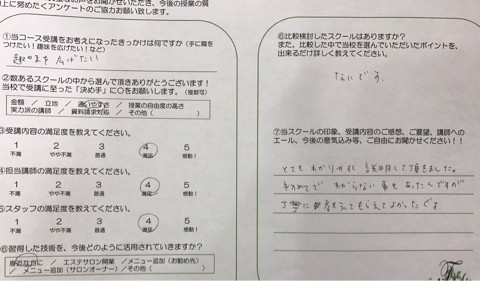 上に努めたくアンケートのご協力お願い致します。
①当コース受講をお考えになったきっかけは何ですか（手に職を
つけたい！趣味を広げたい！など）
趣味を広げたい
②数あるスクールの中から選んで頂きありがとうございます！
当校で受講に至った「決め手」に〇をお願いします。（複数可）
金額 ／ 立地 ／ 通いやすさ ／ 授業の自由度の高さ
実力派の講師 ／ 資料請求対応 ／ その他（ ）
③受講内容の満足度を教えてください。
1 2 3 4 5
不満 やや不満 普通 満足 感動！
④担当講師の満足度を教えてください。
1 2 3 4 5
不満 やや不満 普通 満足 感動！
⑤スタッフの満足度を教えてください。
1 2 3 4 5
不満 やや不満 普通 満足 感動！
⑥習得した技術を、今後どのように活用されていきますか？
身近な方に ／ エステサロン開業 ／メニュー追加（お勤め先）
／ メニュー追加（サロンオーナー）／その他（ ）
⑥比較検討したスクールはありますか？
また、比較した中で当校を選んでいただいたポイントを、
出来るだけ詳しく教えてください。
ないです。
⑦当スクールの印象、受講内容のご感想、ご要望、講師への
エール、今後の意気込み等、ご自由にお書きください！！
とてもわかりやすく説明して頂きました。
初めてでわからない事もあったんですが
丁寧に教えてもらえてよかったです。